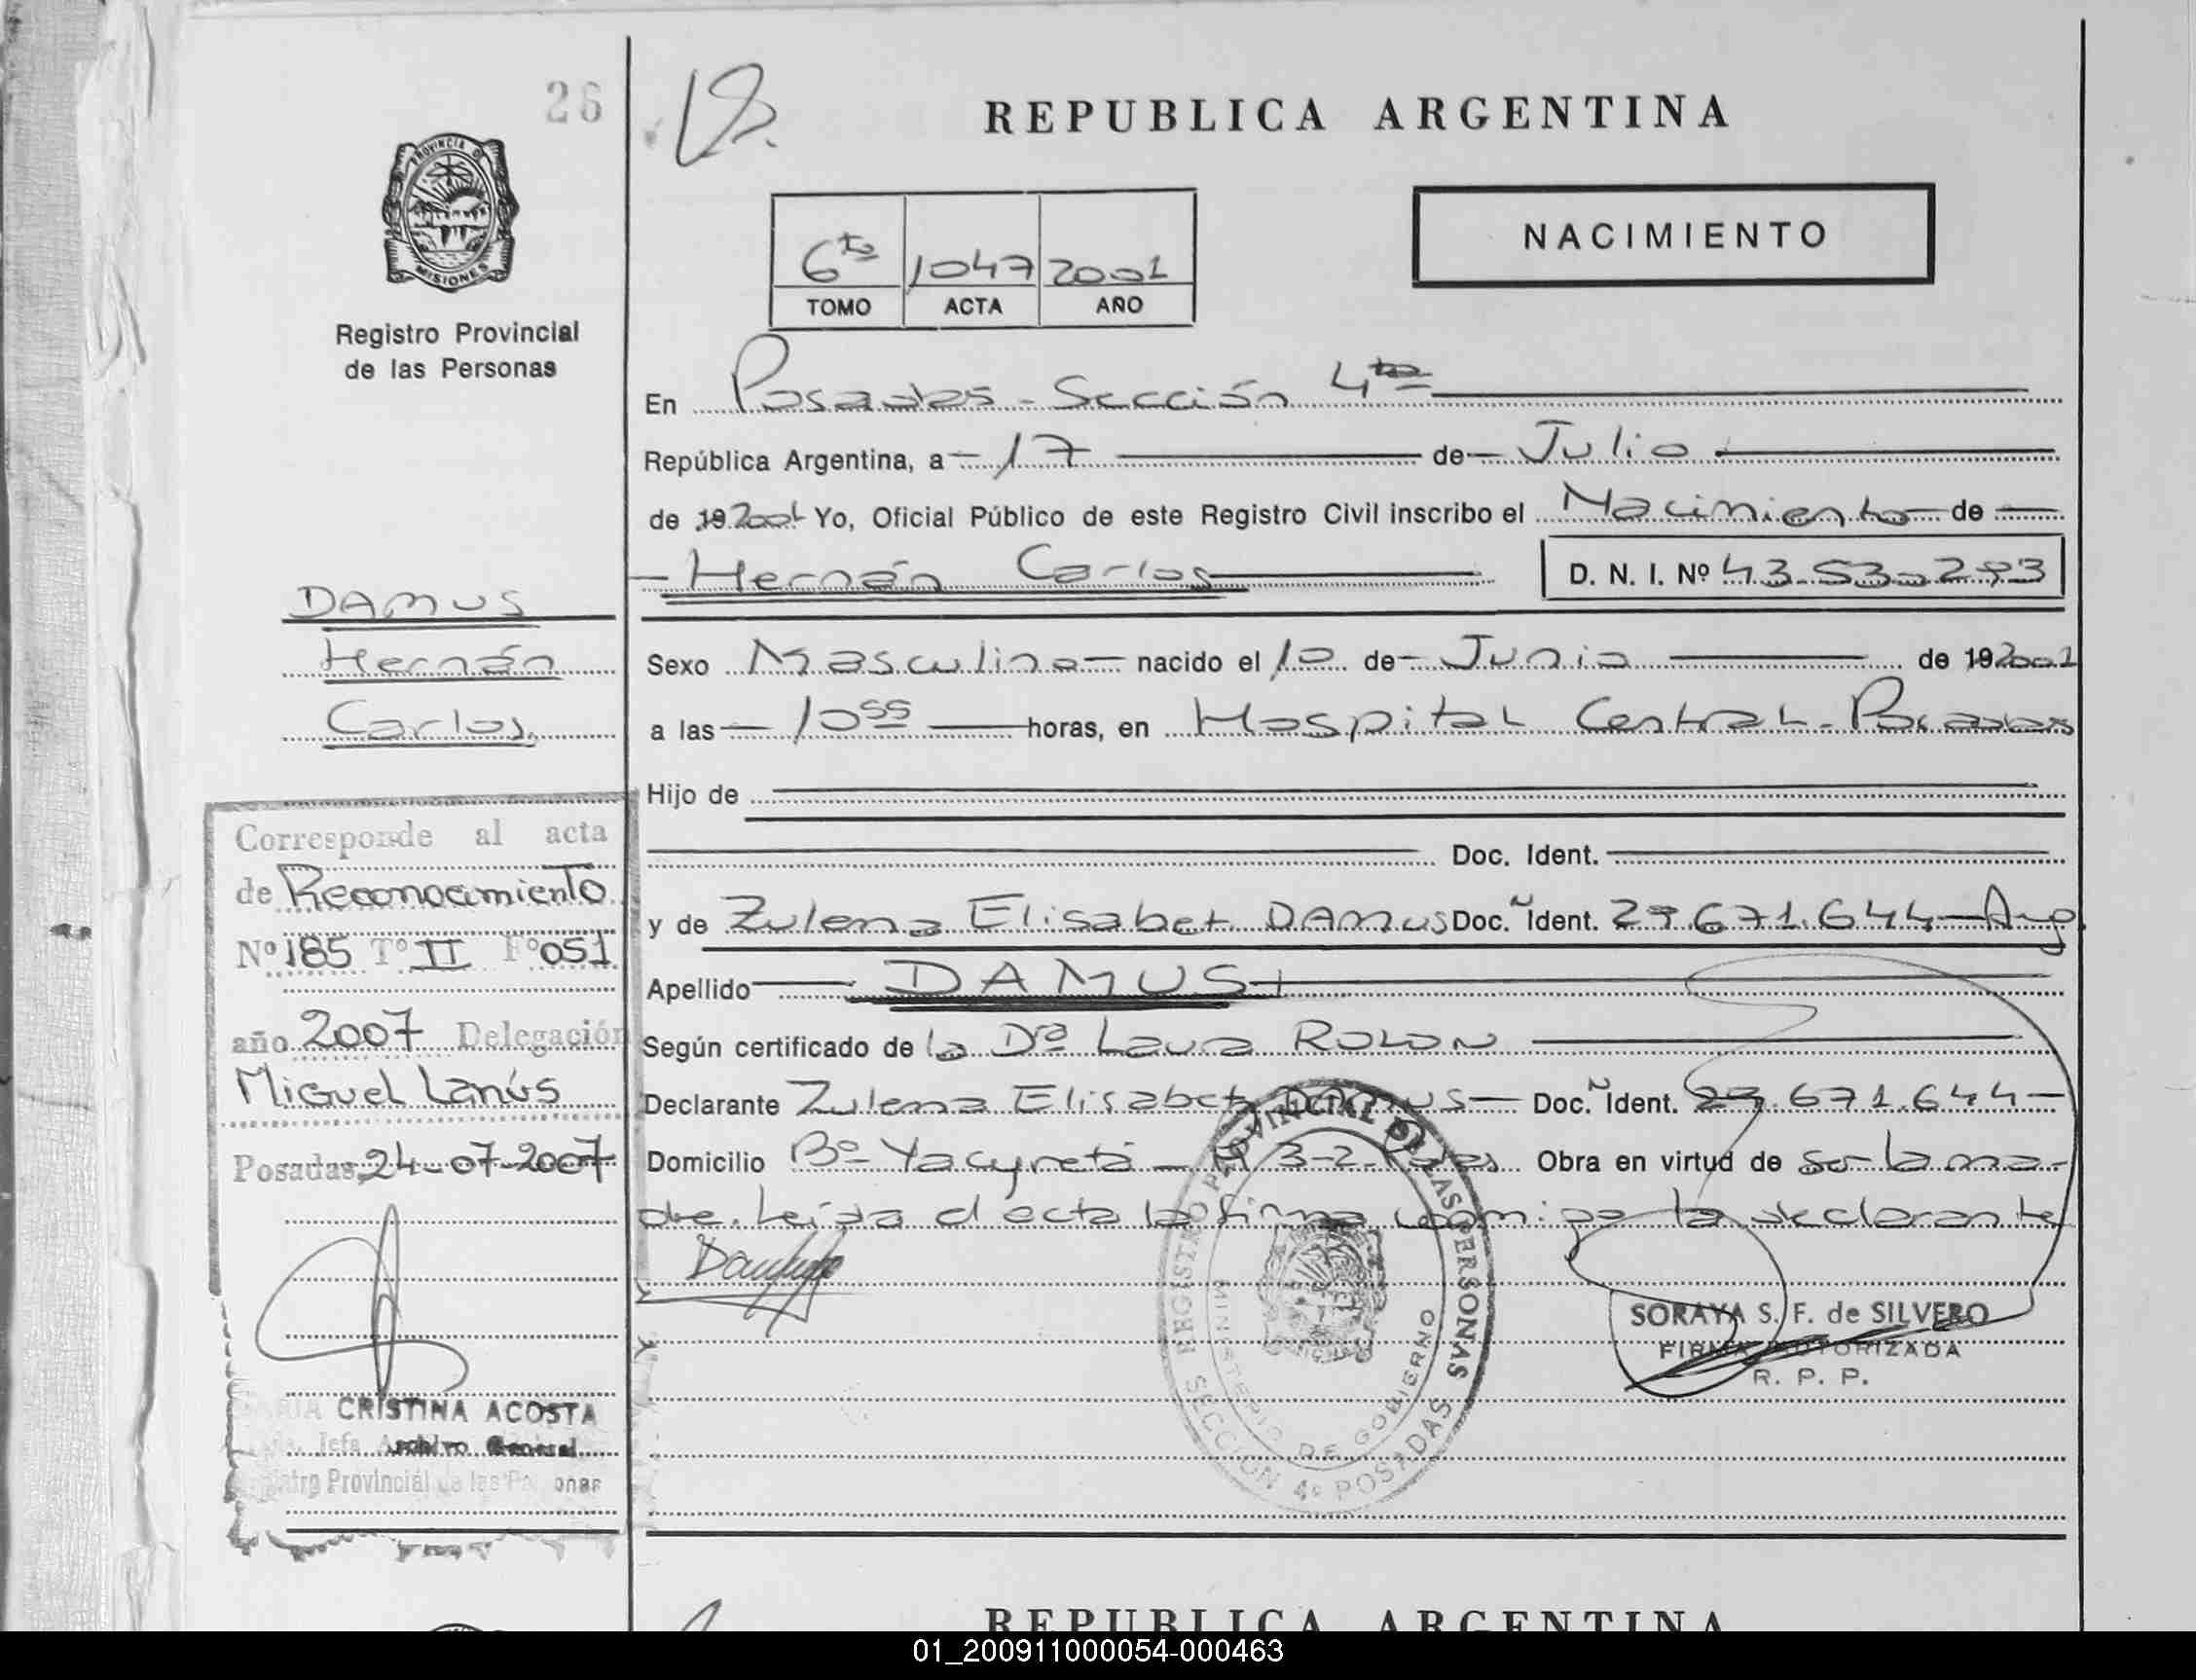 26
PROVINCIA D
MISIONES
Registro Provincial
de las Personas
REPUBLICA ARGENTINA
NACIMIENTO
6to 1047 2001
TOMO ACTA AÑO
En Posadas - Sección 4ta
República Argentina, a 17 de Julio
de 19 2001 Yo, Oficial Público de este Registro Civil inscribo el Nacimiento de
Hernán Carlos D. N. I. Nº
Sexo Masculino nacido el 10 de Junio de 19 2001
a las 10 55 horas, en Hospital Central - Posadas
Hijo de
Doc. Ident.
y de Zulema Elisabet DAMUS Doc. Ident. 29.671.644 - Arg
Apellido DAMUS
Según certificado de la Dra Laura ROLON
Declarante Zulema Elisabet DAMUS Doc. Ident. 29.671.644
Domicilio Bº Yacyretá - 3-2- Obra en virtud de ser la ma-
dre. Leída el acta la firma conmigo la declarante
SORAYA S. F. de SILVERO
FIRMA AUTORIZADA
R. P. P.
REGISTRO PROVINCIAL DE LAS PERSONAS
MINISTERIO DE GOBIERNO
SECCION 4º POSADAS
DAMUS
Hernán
Carlos
Corresponde al acta
de Reconocimiento
Nº 185 Tº II Fº 051
año 2007 Delegación
Miguel Lanús
Posadas, 24-07-2007
CRISTINA ACOSTA
Jefa Archivo General
Provincial de las
REPUBLICA ARGENTINA
01_200911000054-000463